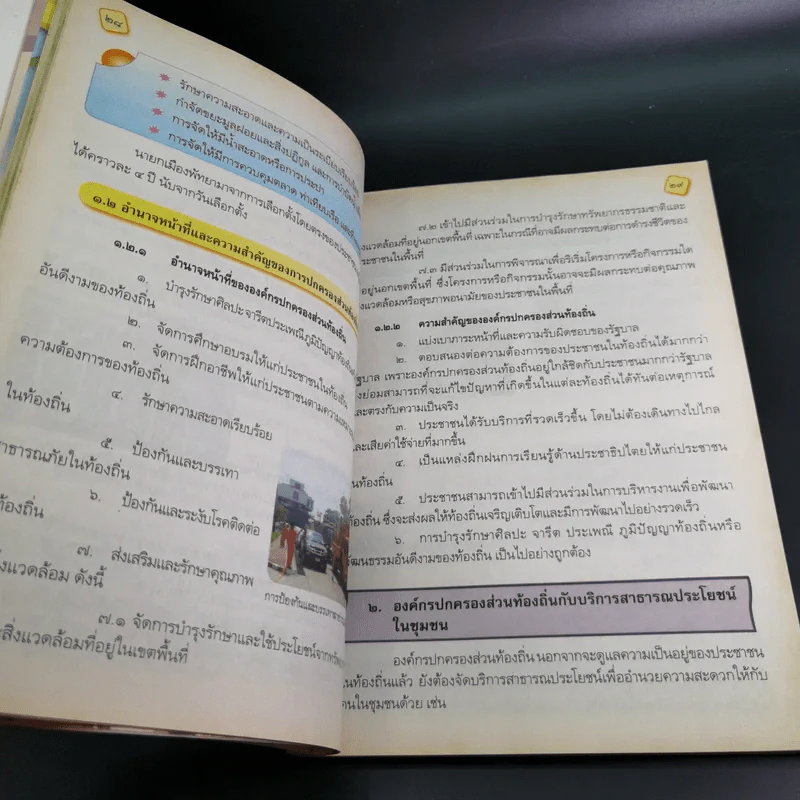 ๒๘
รักษาความสะอาดและความเป็นระเบียบเรียบร้อย
กำจัดขยะมูลฝอยและสิ่งปฏิกูล และการบำบัดน้ำ
การจัดให้มีน้ำสะอาดหรือการประปา
การจัดให้มีการควบคุมตลาด ท่าเทียบเรือ และที่
นายกเมืองพัทยามาจากการเลือกตั้งโดยตรงของประชาชน
ได้คราวละ ๔ ปี นับจากวันเลือกตั้ง
๑.๒ อำนาจหน้าที่และความสำคัญของการปกครองส่วนท้องถิ่น
๑.๒.๑ อำนาจหน้าที่ขององค์กรปกครองส่วนท้องถิ่น
๑. บำรุงรักษาศิลปะจารีตประเพณีภูมิปัญญาท้องถิ่น
อันดีงามของท้องถิ่น
๒. จัดการศึกษาอบรมให้แก่ประชาชนในท้องถิ่น
๓. จัดการฝึกอาชีพให้แก่ประชาชนตามความเหมาะสม
ความต้องการของท้องถิ่น
๔. รักษาความสะอาดเรียบร้อย
ในท้องถิ่น
๕. ป้องกันและบรรเทา
สาธารณภัยในท้องถิ่น
๖. ป้องกันและระงับโรคติดต่อ
๗. ส่งเสริมและรักษาคุณภาพ
สิ่งแวดล้อม ดังนี้
การป้องกันและบรรเทา
๗.๑ จัดการบำรุงรักษาและใช้ประโยชน์จากทรัพยา
สิ่งแวดล้อมที่อยู่ในเขตพื้นที่
๒๙
๗.๒ เข้าไปมีส่วนร่วมในการบำรุงรักษาทรัพยากรธรรมชาติและ
งแวดล้อมที่อยู่นอกเขตพื้นที่ เฉพาะในกรณีที่อาจมีผลกระทบต่อการดำรงชีวิตของ
ประชาชนในพื้นที่
๗.๓ มีส่วนร่วมในการพิจารณาเพื่อริเริ่มโครงการหรือกิจกรรมใด
อยู่นอกเขตพื้นที่ ซึ่งโครงการหรือกิจกรรมนั้นอาจจะมีผลกระทบต่อคุณภาพ
งแวดล้อมหรือสุขภาพอนามัยของประชาชนในพื้นที่
๑.๒.๒ ความสำคัญขององค์กรปกครองส่วนท้องถิ่น
๑. แบ่งเบาภาระหน้าที่และความรับผิดชอบของรัฐบาล
๒. ตอบสนองต่อความต้องการของประชาชนในท้องถิ่นได้มากกว่า
รัฐบาล เพราะองค์กรปกครองส่วนท้องถิ่นอยู่ใกล้ชิดกับประชาชนมากกว่ารัฐบาล
งย่อมสามารถที่จะแก้ไขปัญหาที่เกิดขึ้นในแต่ละท้องถิ่นได้ทันต่อเหตุการณ์
และตรงกับความเป็นจริง
๓. ประชาชนได้รับบริการที่รวดเร็วขึ้น โดยไม่ต้องเดินทางไปไกล
และเสียค่าใช้จ่ายที่มากขึ้น
๔. เป็นแหล่งฝึกฝนการเรียนรู้ด้านประชาธิปไตยให้แก่ประชาชน
นท้องถิ่น
๕. ประชาชนสามารถเข้าไปมีส่วนร่วมในการบริหารงานเพื่อพัฒนา
ท้องถิ่น ซึ่งจะส่งผลให้ท้องถิ่นเจริญเติบโตและมีการพัฒนาไปอย่างรวดเร็ว
๖. การบำรุงรักษาศิลปะ จารีต ประเพณี ภูมิปัญญาท้องถิ่นหรือ
วัฒนธรรมอันดีงามของท้องถิ่น เป็นไปอย่างถูกต้อง
๒. องค์กรปกครองส่วนท้องถิ่นกับบริการสาธารณประโยชน์
ในชุมชน
องค์กรปกครองส่วนท้องถิ่น นอกจากจะดูแลความเป็นอยู่ของประชาชน
นท้องถิ่นแล้ว ยังต้องจัดบริการสาธารณประโยชน์เพื่ออำนวยความสะดวกให้กับ
คนในชุมชนด้วย เช่น